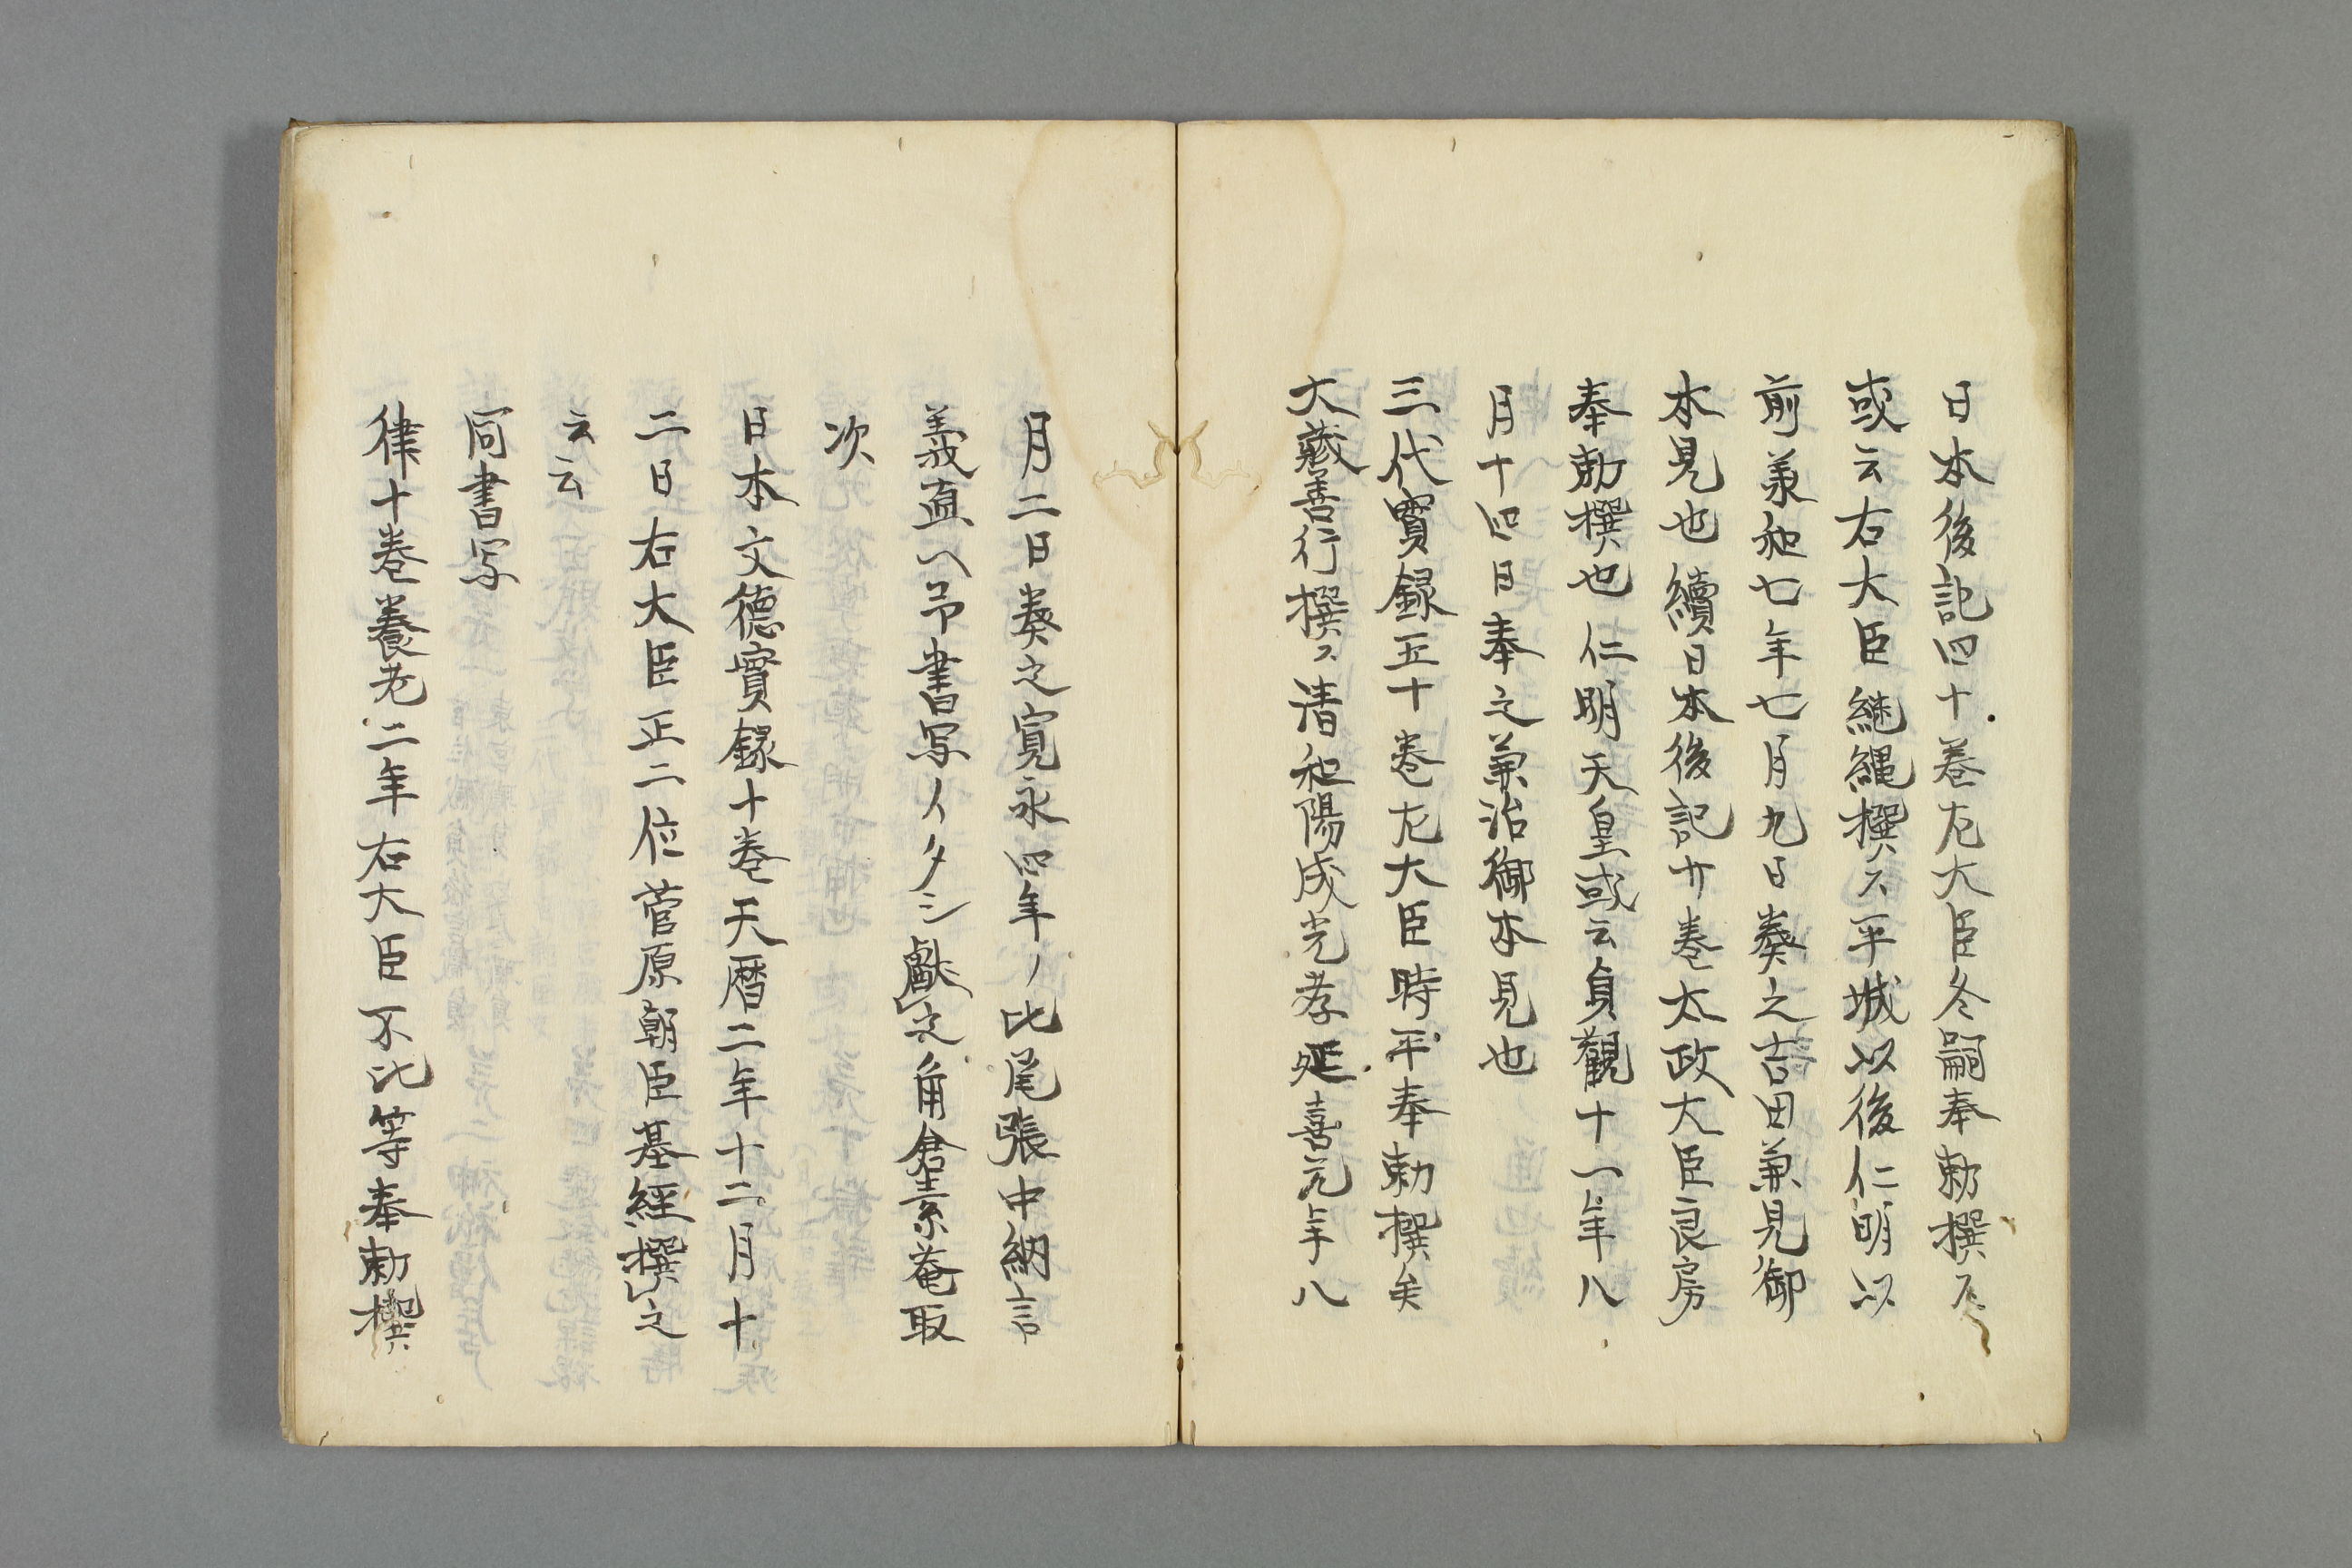 日本後記四十巻左大臣冬嗣奉勅撰ス
或云右大臣継縄撰ス平城以後仁明以
前承和七年七月九日奏之吉田兼見御
本見也續日本後記廿巻太政大臣良房
奉勅撰也仁明天皇或云貞觀十一年八
月十四日奉之兼治御本見也
三代實録五十巻左大臣時平奉勅撰矣
大蔵善行撰ス清和陽成光孝延喜元年八
月二日奏之寛永四年ノ比尾張中納言
義直ヘ予書写イタシ獻之角倉素菴取
次
日本文徳實録十巻天暦二年十二月十
二日右大臣正二位菅原朝臣基經撰之
云云
同書写
律十巻養老二年右大臣不比等奉勅撰